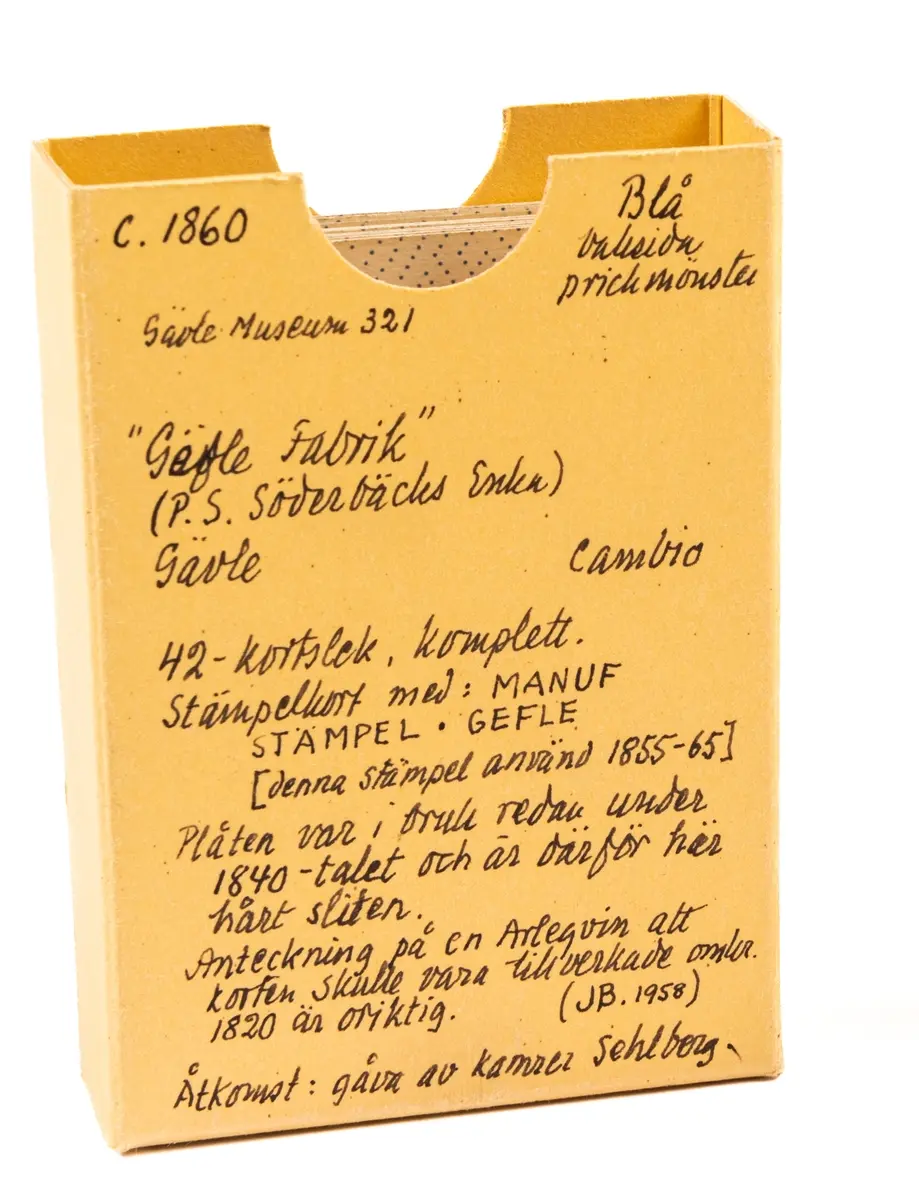 c. 1860
Blå
baksida
prickmönster
Gävle Museum 321
"Gefle Fabrik"
(P. S. Söderbäcks Enka)
Gävle
Cambio
42-kortslek, komplett.
Stämpelkort med: MANUF
STÄMPEL · GEFLE
[denna stämpel använd 1855-65]
Plåten var i bruk redan under
1840-talet och är därför här
hårt sliten.
Anteckning på en Arleqvin att
korten skulle vara tillverkade omkr.
1820 är oriktig. (JB. 1958)
Åtkomst: gåva av kamrer Sehlberg.